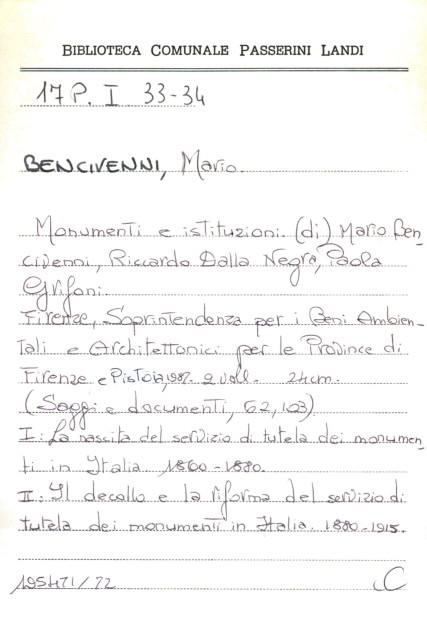 BIBLIOTECA COMUNALE PASSERINI LANDI
17 P. I 33-34
BENCIVENNI, Mario.
Monumenti e istituzioni. (di) Mario Ben-
civenni, Riccardo Dalla Negra, Paola
Grifoni.
Firenze, Soprintendenza per i Beni Ambien-
tali e Architettonici per le Province di
Firenze e Pistoia, 1987. 2 voll. 24 cm.
(Saggi e documenti, 62, 103)
I: La nascita del servizio di tutela dei monumen-
ti in Italia 1860-1880.
II: Il decollo e la riforma del servizio di
tutela dei monumenti in Italia. 1880-1915.
195471/72 C